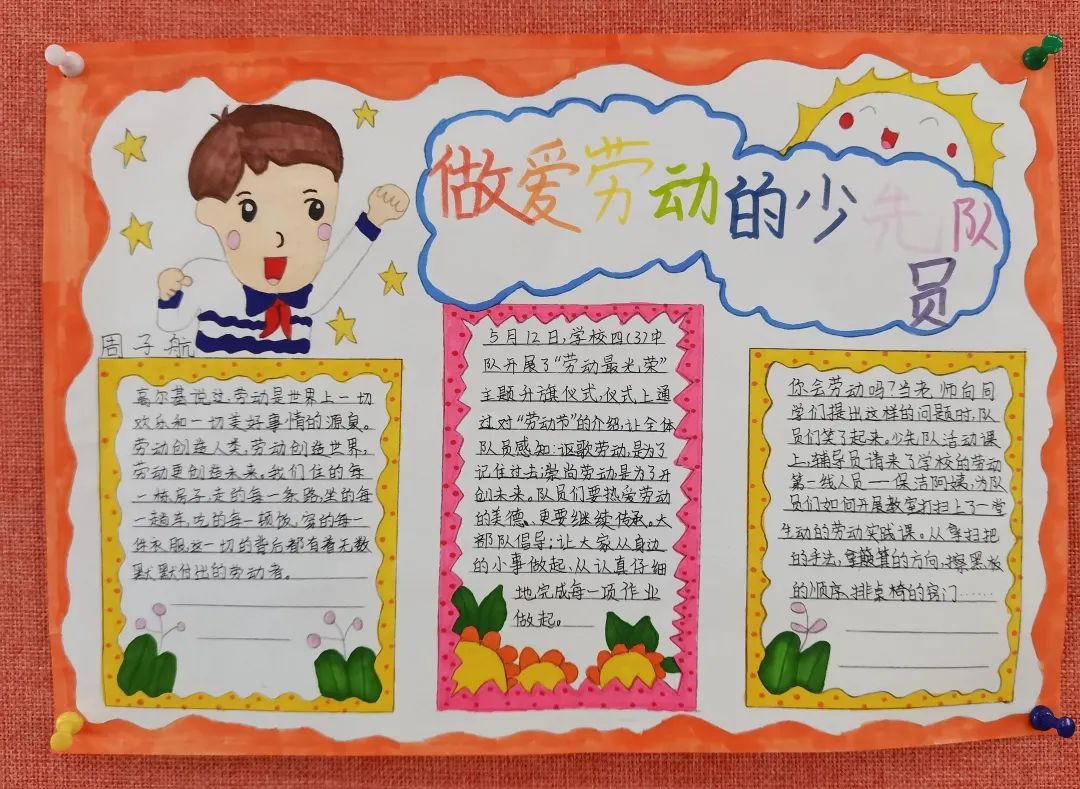 做爱劳动的少先队
员
周子航
高尔基说过,劳动是世界上一切
欢乐和一切美好事情的源泉。
劳动创造人类,劳动创造世界,
劳动更创造未来。我们住的每
一栋房子,走的每一条路,坐的每
一趟车,吃的每一顿饭,穿的每一
件衣服,这一切的背后都有着无数
默默付出的劳动者。
5月12日,学校四(3)中
队开展了“劳动最光荣”
主题升旗仪式,仪式上通
过对“劳动节”的介绍,让全体
队员感知:讴歌劳动,是为了
记住过去;崇尚劳动是为了开
创未来。队员们要热爱劳动
的美德、更要继续传承。大
部队倡导:让大家从身边
的小事做起,从认真仔细
地完成每一项作业
做起。
你会劳动吗?当老师向同
学们提出这样的问题时,队
员们笑了起来。少先队活动课
上,辅导员请来了学校的劳动
第一线人员——保洁阿姨,为队
员们如何开展教室打扫上了一堂
生动的劳动实践课。从拿扫把
的手法,拿簸箕的方向,擦黑板
的顺序、排桌椅的窍门……